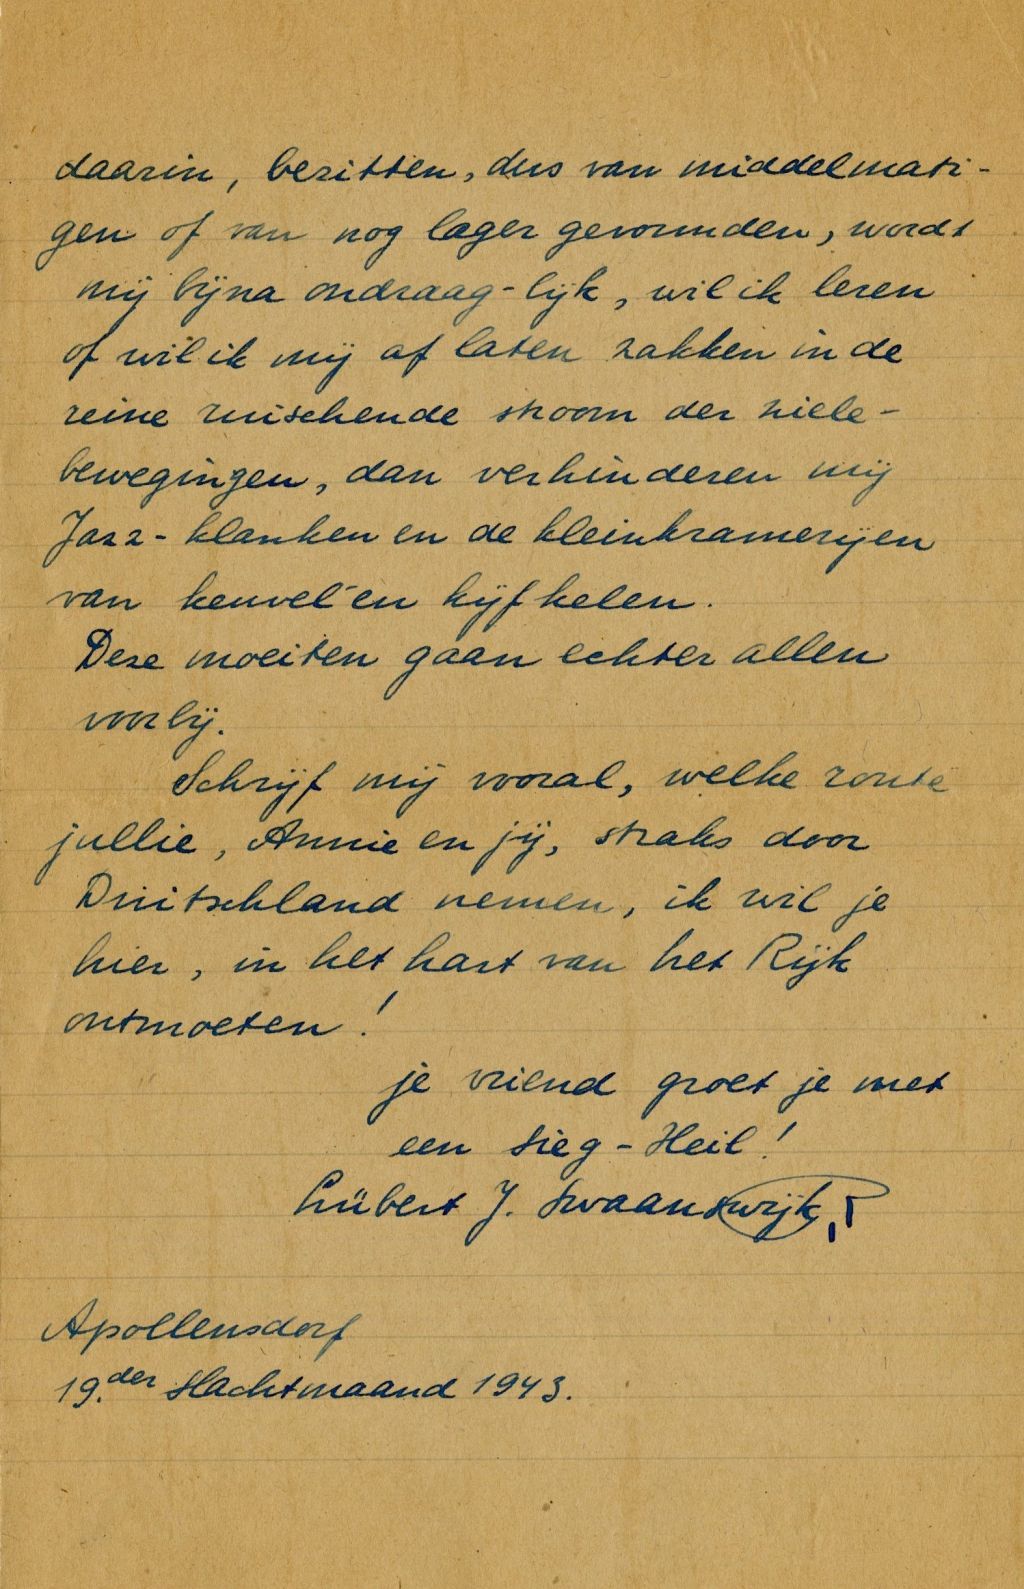 daarin, bezitten, dus van middelmati-
gen of van nog lager gevormden, wordt
mij bijna ondraag-lijk, wil ik lezen
of wil ik mij af laten zakken in de
reine ruischende stroom der ziele-
bewegingen, dan verhinderen mij
Jazz-klanken en de kleinkramerijen
van keuvel- en kijfkelen.
Deze moeiten gaan echter allen
voorbij.
Schrijf mij vooral, welke route
jullie, Annie en jij, straks door
Duitschland nemen, ik wil je
hier, in het hart van het Rijk
ontmoeten!
je vriend groet je met
een Sieg-Heil!
Lübert J. Swaanswijk,
Apollensdorf
19.der Slachtmaand 1943.